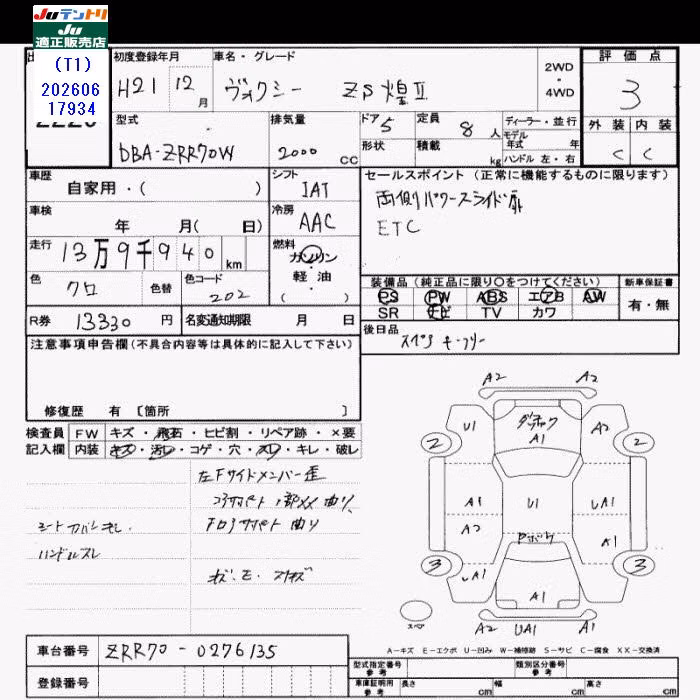 JUテントリ
JU
適正販売店
(T1)
202606
17934
初度登録年月
H21 12月
車名・グレード
ヴォクシー ZS 煌Ⅱ
2WD
・
4WD
評価点
3
外装 内装
C C
型式
DBA-ZRR70W
排気量
2000 CC
ドア 5
定員 8人
形状
積載 kg
ディーラー・並行
モデル
年式 年
ハンドル 左・右
車歴
自家用・( )
シフト
IAT
セールスポイント(正常に機能するものに限ります)
両側パワースライド扉
ETC
車検
年 月( 日)
冷房
AAC
走行
13万9千940km
燃料
ガソリン
・
軽油
( )
色
クロ
色替
色コード
202
装備品(純正品に限り○をつけてください)
PS PW ABS エアB AW
SR ナビ TV カワ
新車保証書
有・無
R券 13330円
名変通知期限 月 日
後日品
スペア キーフリー
注意事項申告欄(不具合内容等は具体的に記入して下さい)
修復歴 有 [箇所 ]
検査員
記入欄
FW キズ・飛石・ヒビ割・リペア跡・×要
内装 キズ・汚レ・コゲ・穴・スレ・キレ・破レ
左Fサイドメンバー歪
コアサポート 1部XX 曲り、
ハンドルスレ
A2 A1
ダイヤ
U1 A1 A2
2 2
A1 U1 UA1
A2 A1
3 3
UA1 A1
スペア
A2 UA1 A1
A-キズ E-エクボ U-凹み W-補修跡 S-サビ C-腐食 XX-交換済
車台番号 ZRR70-0276135
登録番号
型式指定番号
参考
類別区分番号
参考
車庫証明用
参考
長さ cm
幅 cm
高さ cm